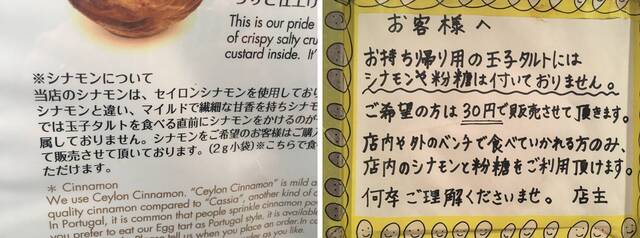 This is our pride
of crispy salty cru
custard inside. It'
※シナモンについて
当店のシナモンは、セイロンシナモンを使用してお
シナモンと違い、マイルドで繊細な甘香を持ちシナモ
では玉子タルトを食べる直前にシナモンをかけるのが
属しておりません。シナモンをご希望のお客様はご購入
て販売させて頂いております。(2g小袋)※こちらで食
ただけます。
* Cinnamon
We use Ceylon Cinnamon. "Ceylon Cinnamon" is mild a
quality cinnamon compared to "Cassia", another kind of c
In Portugal, it is common that people sprinkle cinnamon pow
you prefer to eat our Egg tart as Portugal style, it is availab
tell us when you place an order. In co
as you like.
お客様へ
お持ち帰り用の玉子タルトには
シナモンや粉糖は付いておりません。
ご希望の方は30円で販売させて頂きます。
店内や外のベンチで食べていかれる方のみ、
店内のシナモンと粉糖をご利用頂けます。
何卒ご理解くださいませ。 店主